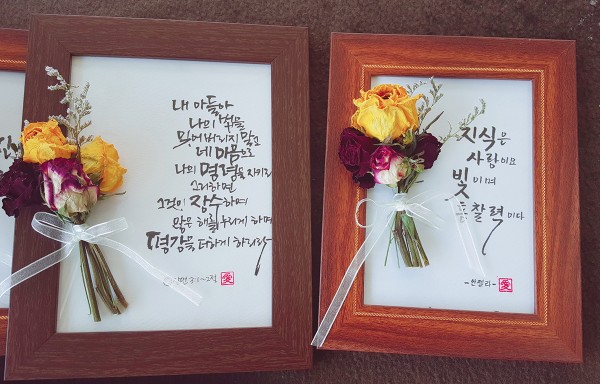 내 아들아
나의 법을
잊어버리지 말고
네 마음으로
나의 명령을 지키라
그리하면
그것이 장수하며
많은 해를 누리게 하며
평강을 더하게 하리라
잠언 3:1~2절
愛
지식은
사랑이요
빛이며
통찰력이다
愛